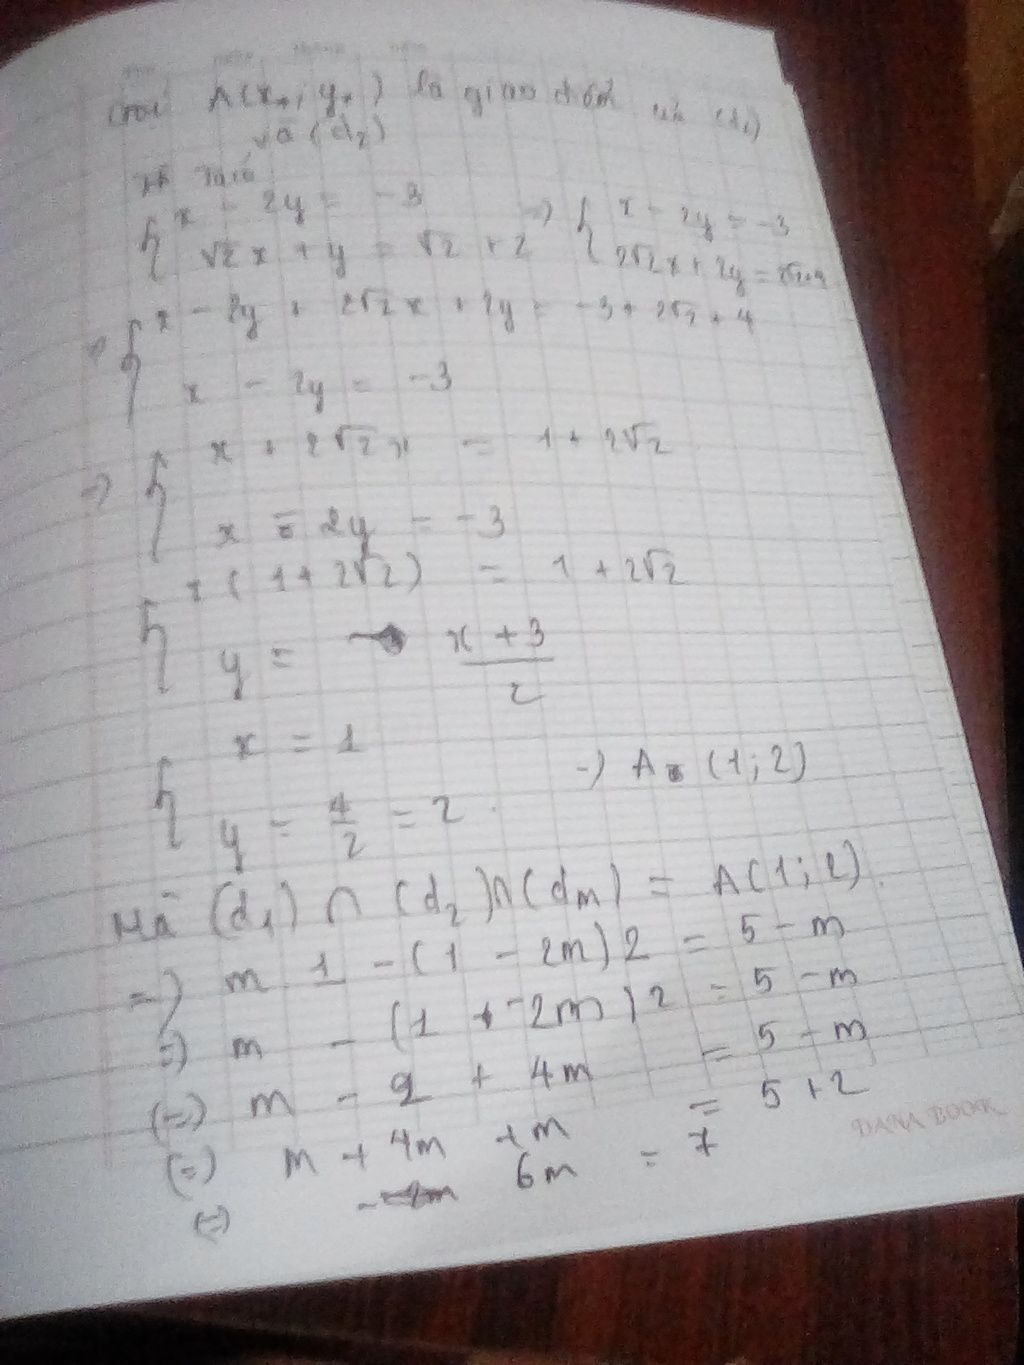 Gọi A(x₀; y₀) là giao điểm của (d₁)
và (d₂)
Ta có
{ x - 2y = -3 => { x - 2y = -3
√2 x + y = √2 + 2 2√2x + 2y = 2√2+4
=> { x - 2y + 2√2x + 2y = -3 + 2√2 + 4
x - 2y = -3
=> { x + 2√2 x = 1 + 2√2
x - 2y = -3
{ x ( 1 + 2√2 ) = 1 + 2√2
y = x + 3 / 2
{ x = 1
y = 4/2 = 2 . => A (1; 2)
Mà (d₁) ∩ (d₂) ∩ (dm) = A(1; 2).
=> m 1 - (1 - 2m) 2 = 5 - m
=> m - (1 + -2m) 2 = 5 - m
(=) m - 2 + 4m = 5 - m
(=) m + 4m + m = 5 + 2
(=) 6m = 7
DANA BOOK